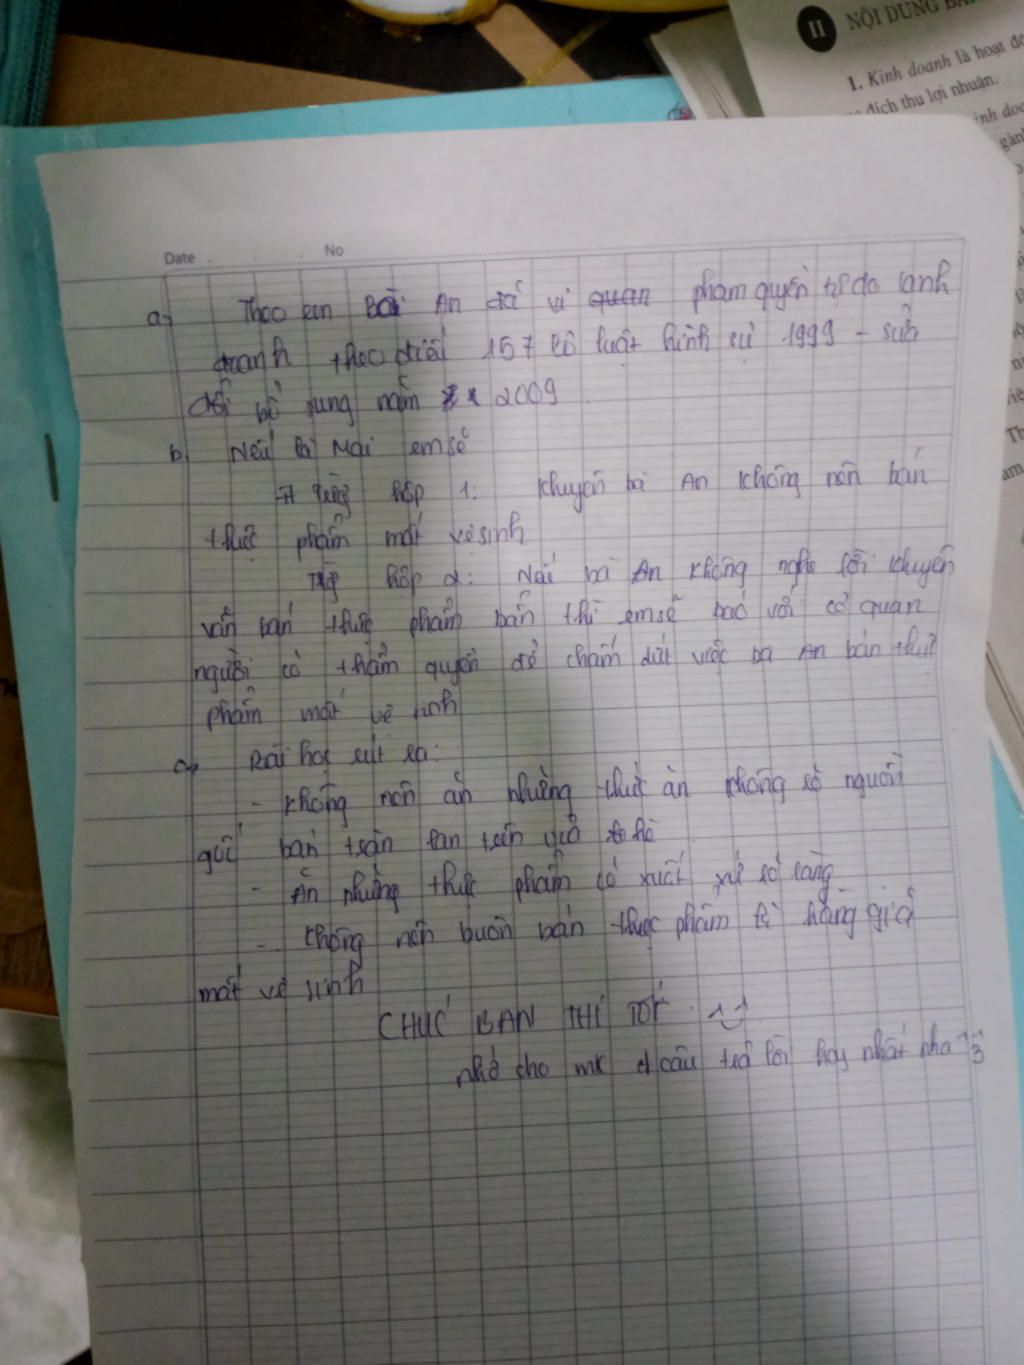 II NỘI DUNG
1. Kinh doanh là hoạt
đích thu lợi nhuận.
Date No
a, Theo em Bà An đã vi quan phạm quyền tự do kinh
doanh theo điều 157 bộ luật hình sự 1999 - sửa
đổi bổ sung năm 2009
b, Nếu là Mai em sẽ
hợp 1: Khuyên bà An không nên bán
thực phẩm mất vệ sinh
hợp 2: Nếu bà An không nghe lời khuyên
vẫn bán thực phẩm bẩn thì em sẽ báo với cơ quan
người có thẩm quyền để chấm dứt việc bà An bán thực
phẩm mất vệ sinh
c, Bài học rút ra:
- Không nên ăn những thức ăn không rõ nguồn
gốc bán tràn lan trên vỉa hè
- Ăn những thực phẩm có xuất xứ rõ ràng
- Không nên buôn bán thực phẩm là hàng giả
mất vệ sinh
CHÚC BẠN THI TỐT
nhớ cho mk câu trả lời hay nhất nha